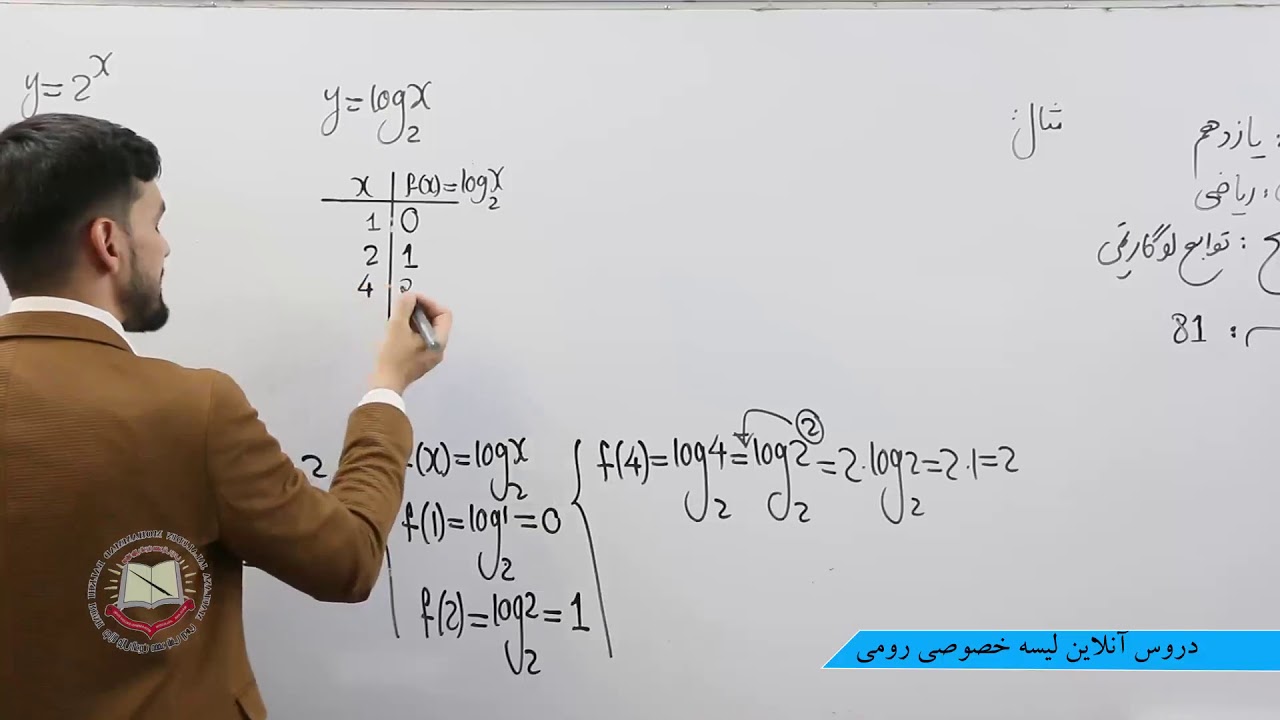 y=2^x
y=log₂x
x | f(x)=log₂x
1 | 0
2 | 1
4 |
مثال:
یازدهم
ریاضی
: توابع لوگاریتمی
: 81
2
f(x)=log₂x
f(1)=log₂1=0
f(2)=log₂2=1
f(4)=log₂4=log₂2^2=2·log₂2=2·1=2
دروس آنلاین لیسه خصوصی رومی